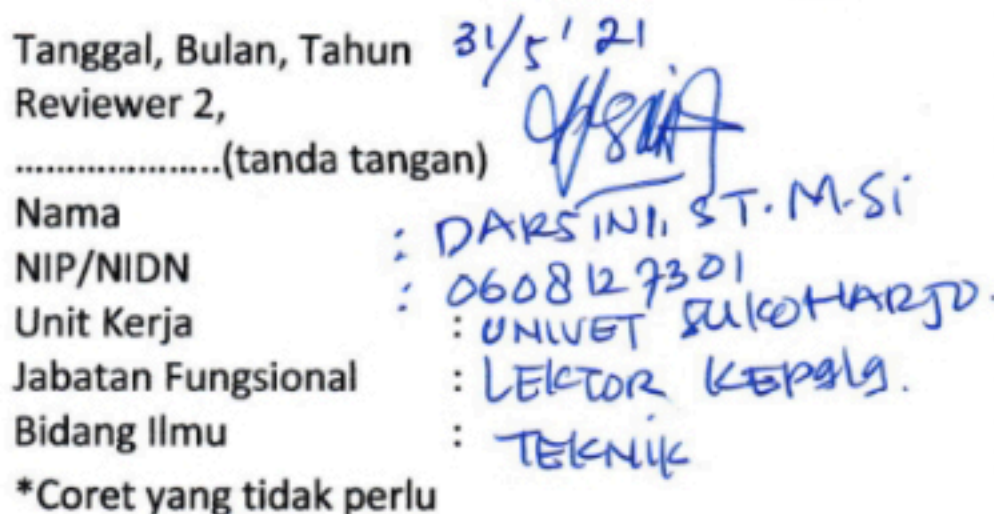 Tanggal, Bulan, Tahun 31/5 ' 21
Reviewer 2,
.....................(tanda tangan)
Nama : DARSINI, ST. M.Si
NIP/NIDN : 0608127301
Unit Kerja : UNIVET SUKOHARJO.
Jabatan Fungsional : LEKTOR KEPALA.
Bidang Ilmu : TEKNIK
*Coret yang tidak perlu